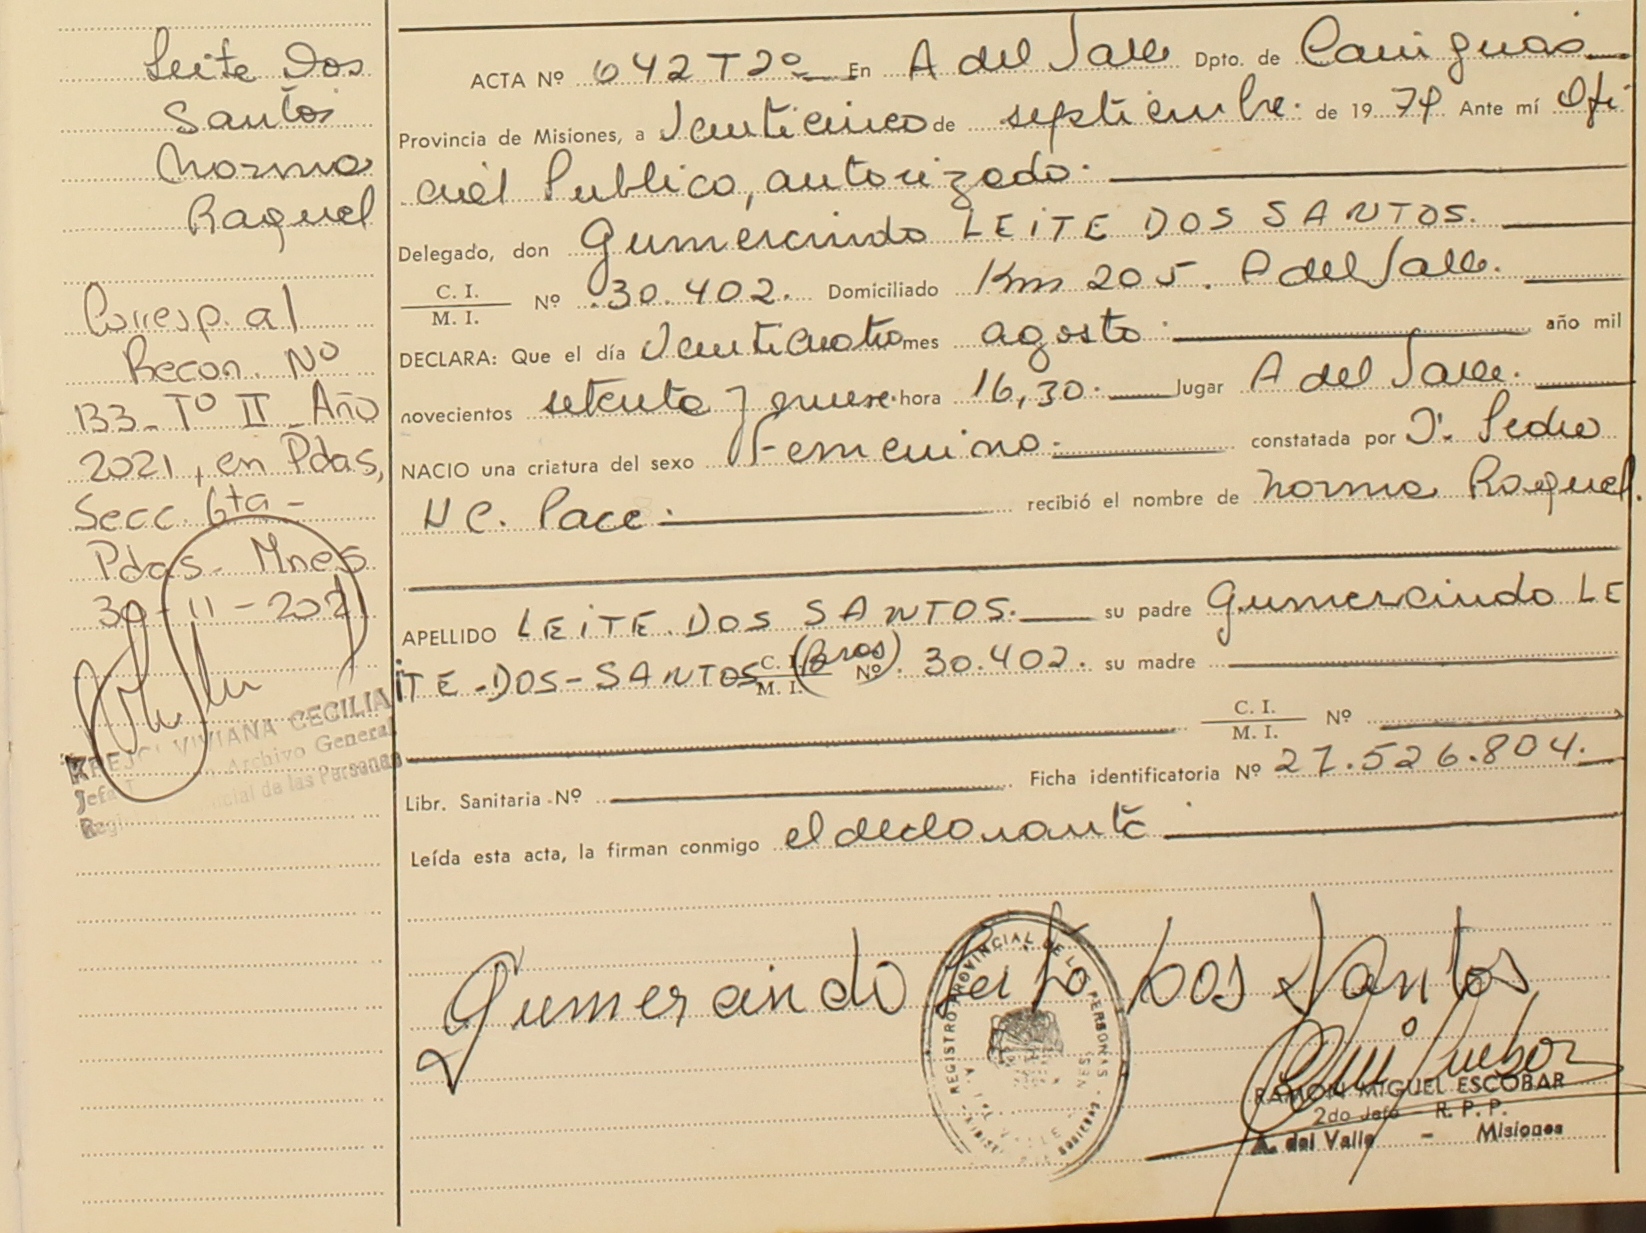 Leite Dos
Santos
Norma
Raquel
Corresp. al
Recon. Nº
133_Tº II_Año
2021, en Pdas,
Secc. 6ta -
Pdas - Mnes
30-11-2021
VIVIANA CECILIA
Archivo General
Jefa
cial de las Personas
ACTA Nº 642 T2º En A del Valle Dpto. de Cainguas
Provincia de Misiones, a Veinticinco de septiembre. de 19 79. Ante mí Ofi
cial Publico, autorizado.
Delegado, don Gumercindo LEiTE DOS SANTOS.
C. I.
M. I. Nº 30.402. Domiciliado Km 205. A del Valle.
DECLARA: Que el día Veinticuatro mes agosto. año mil
novecientos setenta y nueve. hora 16,30. lugar A del Valle.
NACIO una criatura del sexo Femenino. constatada por Dr. Pedro
N C. Pace. recibió el nombre de Norma Raquel.
APELLIDO LEiTE DOS SANTOS. su padre Gumercindo LE
iTE-DOS-SANTOS C. I. M. I. (Bras) Nº. 30.402. su madre
C. I.
M. I. Nº
Libr. Sanitaria Nº Ficha identificatoria Nº 27.526.804.
Leída esta acta, la firman conmigo el declarante
Gumercindo Leite Dos Santos
REGISTRO PROVINCIAL DE LAS PERSONAS
RAMON MIGUEL ESCOBAR
2do Jefe - R. P. P.
A. del Valle - Misiones